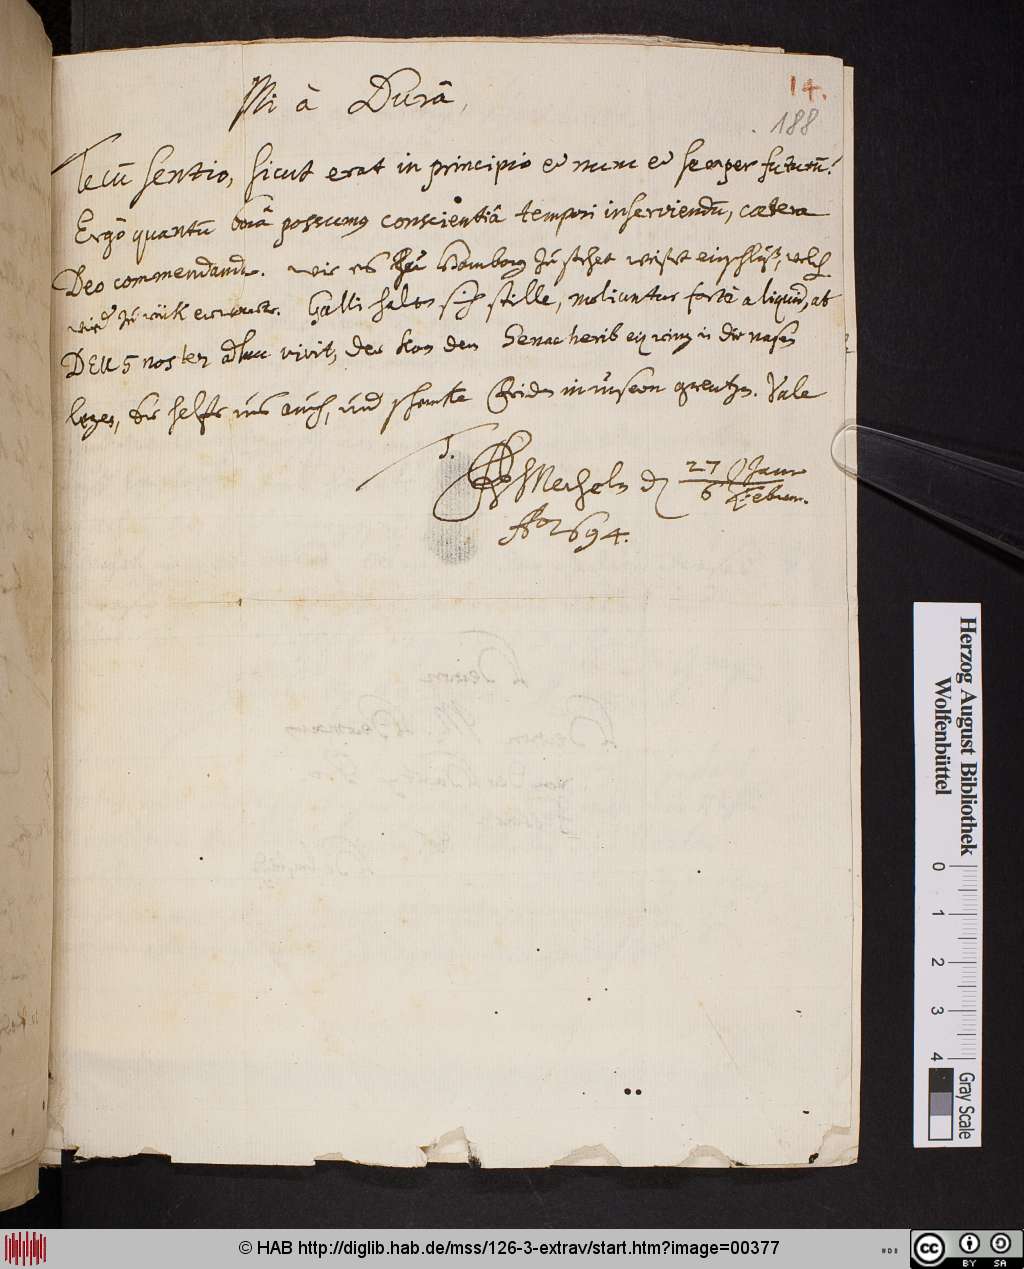 14.
188
Mi à Durâ,
Tecū sentio, sicut erat in principio et nunc et semper futurū.
Ergo quantū bonâ possumus conscientiâ tempori inserviendū, cætera
Deo commendanda. wie es zu Homborg zu stehet weiset einschluß, welch
wird zurück erwartet. Galli halten sich stille, moliuntur fortè aliquid, at
DEUS noster adhuc vivit, der kon dem Senacherib ein ring in die nasen
legen, der helffe uns auch, und schencke Friden in unseren grentzen. Vale
T.
Merholz d 27 Janu
6 Februar.
Aō 1694.
Herzog August Bibliothek
Wolfenbüttel
0 1 2 3 4
Gray Scale
© HAB http://diglib.hab.de/mss/126-3-extrav/start.htm?image=00377
cc BY SA